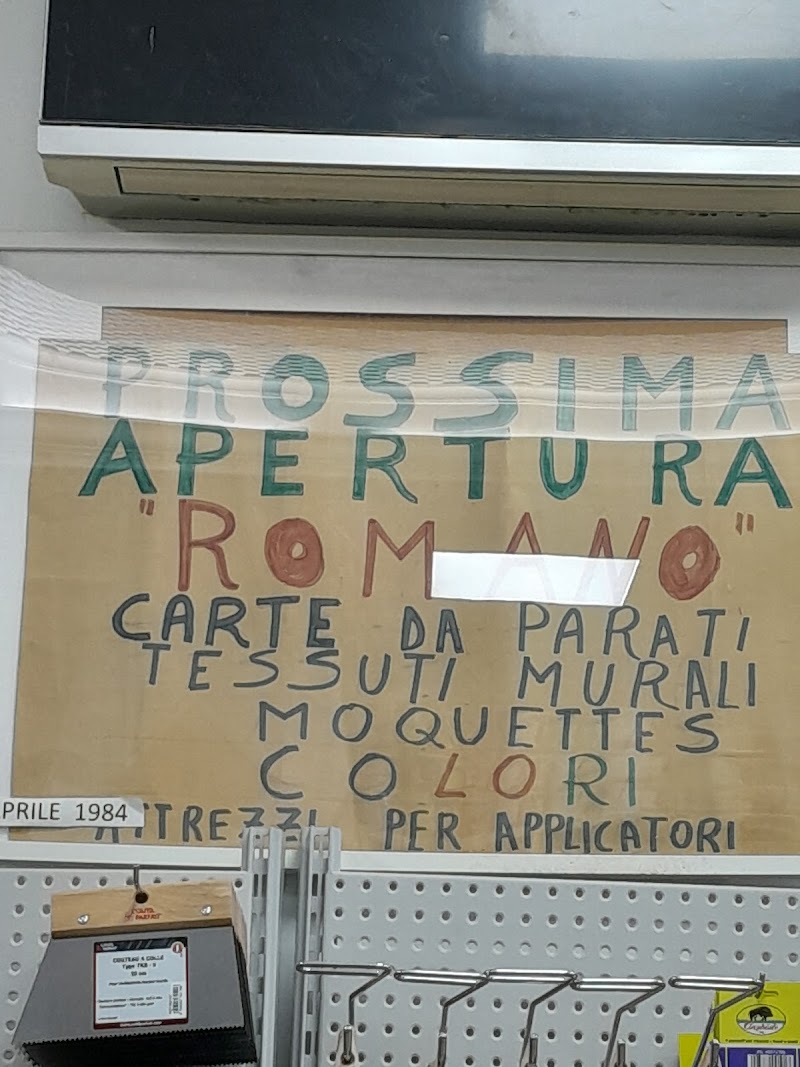 PROSSIMA
APERTURA
"ROMANO"
CARTE DA PARATI
TESSUTI MURALI
MOQUETTES
COLORI
PRILE 1984
ATTREZZI PER APPLICATORI
COUTEAU A COLLE